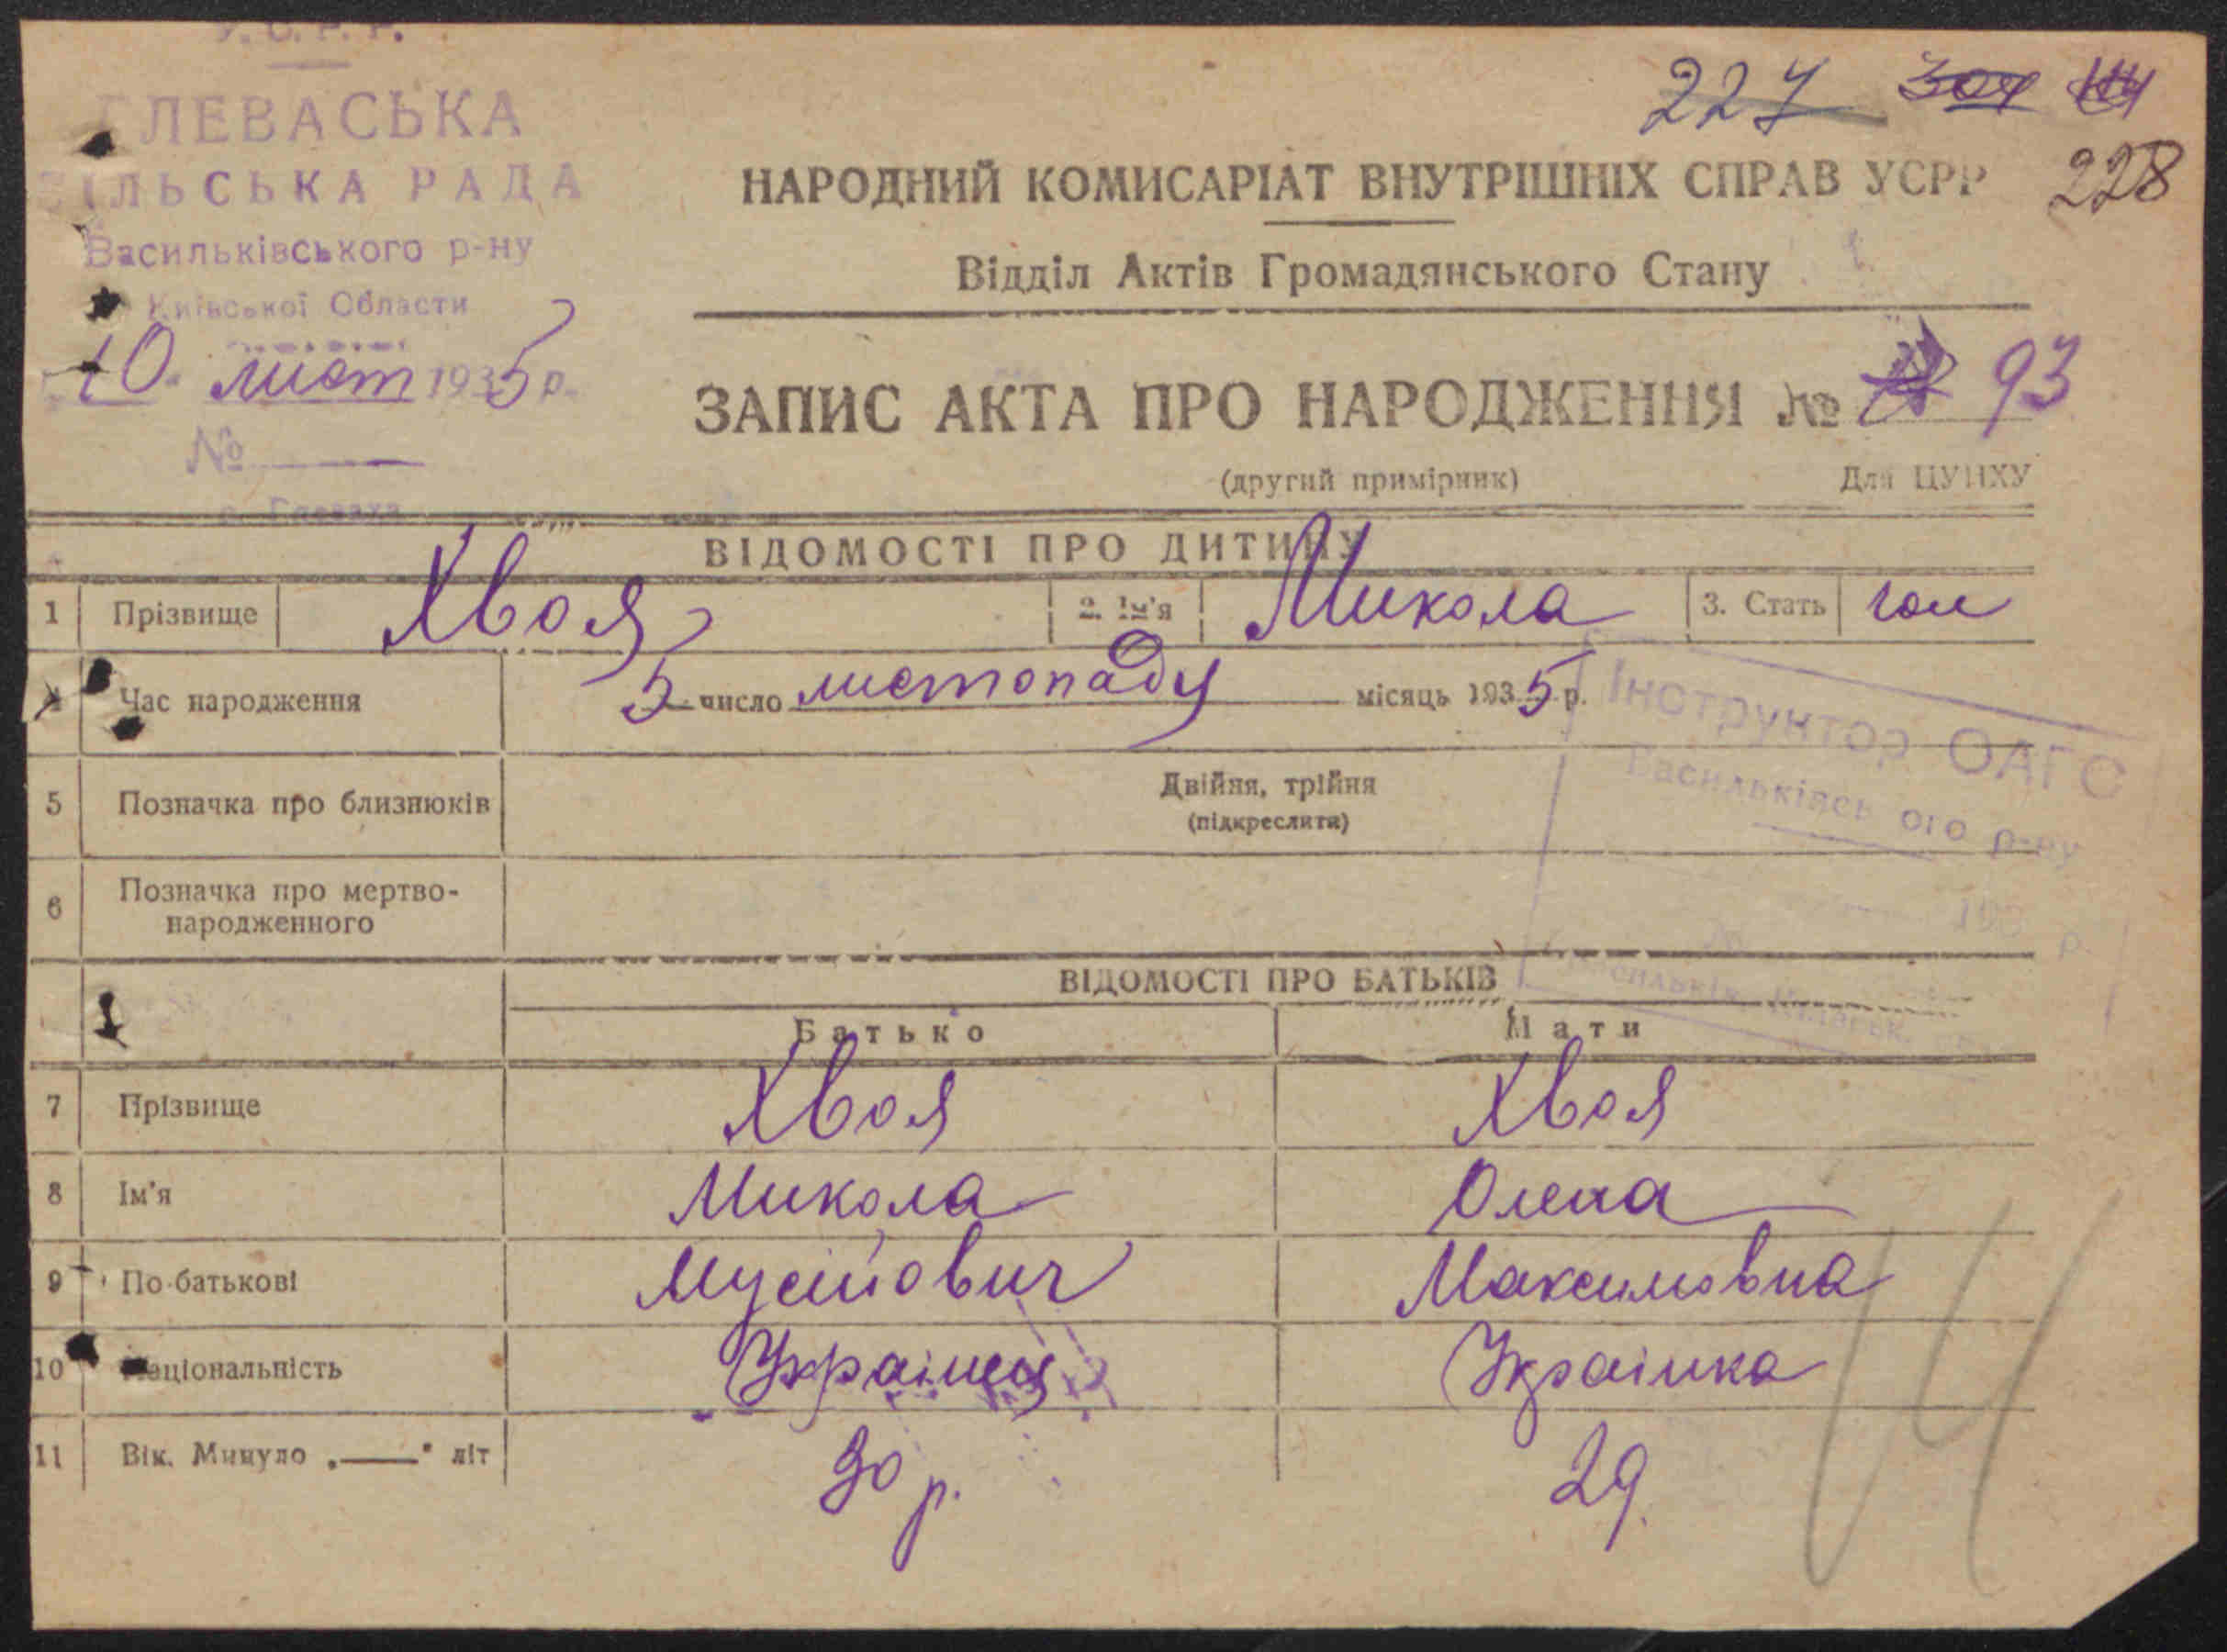 У.С.Р.Р.
ГЛЕВАСЬКА
СІЛЬСЬКА РАДА
Васильківського р-ну
Київської Области
10 лист 1935 р.
№
с. Глеваха
227 304
228
НАРОДНИЙ КОМИСАРІАТ ВНУТРІШНІХ СПРАВ УСРР
Відділ Актів Громадянського Стану
ЗАПИС АКТА ПРО НАРОДЖЕННЯ № 93
(другий примірник) Для ЦУНХУ
ВІДОМОСТІ ПРО ДИТИНУ
1 Прізвище Хвоя 2. Ім'я Микола 3. Стать чол
4 Час народження 5 число листопаду місяць 1935 р.
Інструктор ОАГС
Васильківського р-ну
193 р.
5 Позначка про близнюків Двійня, трійня
(підкреслити)
6 Позначка про мертво-
народженного
ВІДОМОСТІ ПРО БАТЬКІВ
Батько Мати
7 Прізвище Хвоя Хвоя
8 Ім'я Микола Олена
9 По-батькові Мусійович Максимовна
10 Національність Українец Українка
11 Вік. Минуло „——" літ 30 р. 29.